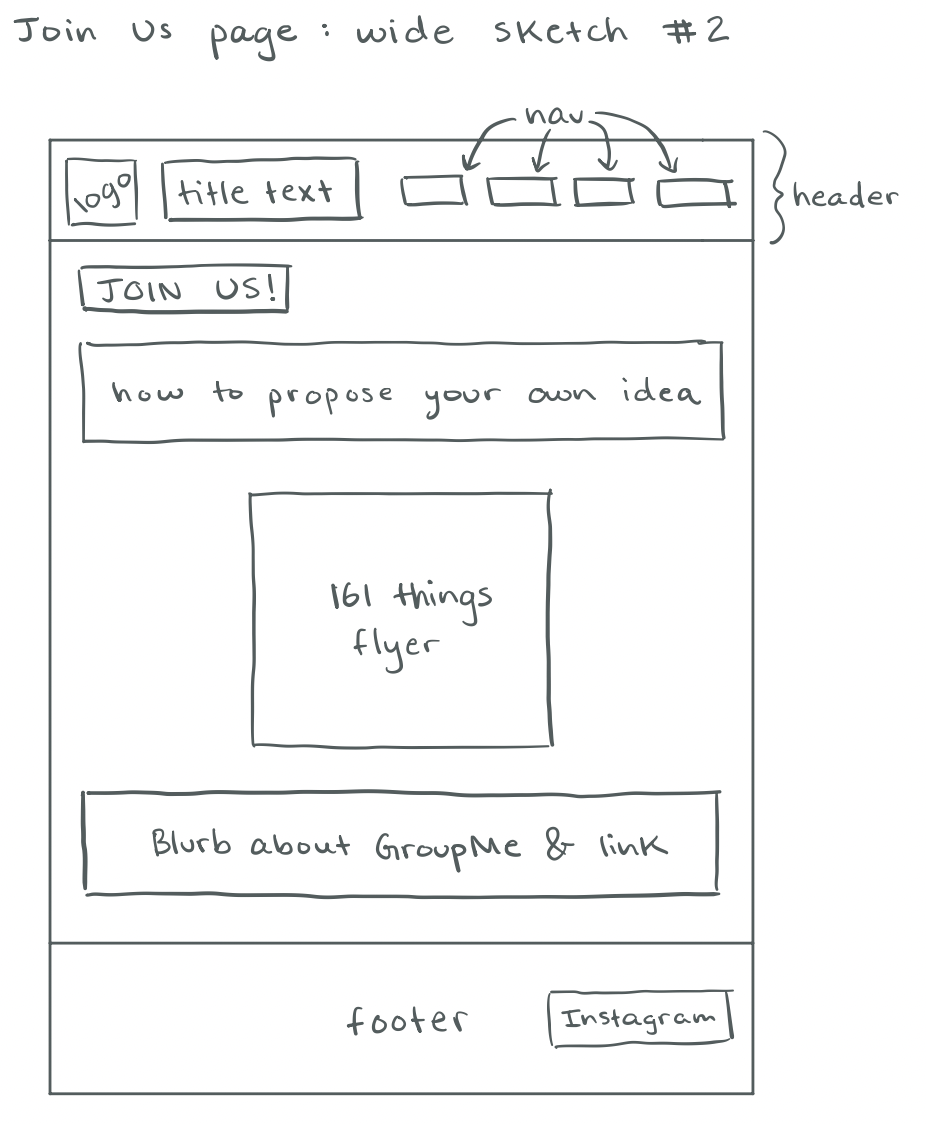 Join Us page: wide sketch #2
nav
logo
title text
header
JOIN US!
how to propose your own idea
161 things
flyer
Blurb about GroupMe & link
footer
Instagram